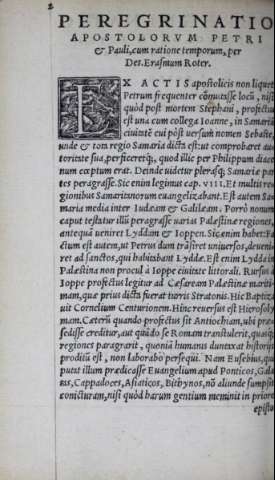 2
PEREGRINATIO
APOSTOLORVM PETRI
& Pauli, cum ratione temporum, per
Des. Erasmum Roter.
EX ACTIS apostolicis non liquet
Petrum frequenter cõmutasse locũ, nisi
quòd post mortem Stephani, profectus
est una cum collega Ioanne, in Samariã
ciuitatẽ cui pòst uersum nomen Sebaste,
unde & tota regio Samaria dicta est: ut comprobaret au
toritate sua, perficeretq́;, quod illic per Philippum diaco
num cœptum erat. Deinde uidetur plerasq́; Samariæ par
tes peragrasse. Sic enim legimus cap. VIII. Et multis re
gionibus Samaritanorum euangelizabant. Est autem Sa
maria media inter Iudæam & Galilæam. Porrò nonum
caput testatur illũ peragrasse uarias Palæstinæ regiones,
antequã ueniret Lyddam & Ioppen. Sic enim habet: Fa
ctum est autem, ut Petrus dum trãsiret uniuersos, deueni
ret ad sanctos, qui habitabant Lyddæ. Est enim Lydda in
Palæstina non procul à Ioppe ciuitate littorali. Rursus à
Ioppe profectus legitur ad Cæsaream Palæstinæ mariti-
mam, quæ prius dicta fuerat turris Stratonis. Hic Baptiza
uit Cornelium Centurionem. Hinc reuersus est Hierosoly
mam. Cæterũ quando profectus sit Antiochiam, ubi primũ
sedisse creditur, aut quãdo se Romam transtulerit, quasq́;
regiones paragrarit, quoniã humanis duntaxat historijs
proditũ est, non laborabo persequi. Nam Eusebius, qui
putat illum prædicasse Euangelium apud Ponticos, Gala
tas, Cappadoces, Asiaticos, Bithynos, nõ aliunde sumpsit
coniecturam, nisi quòd harum gentium meminit in priore
episto